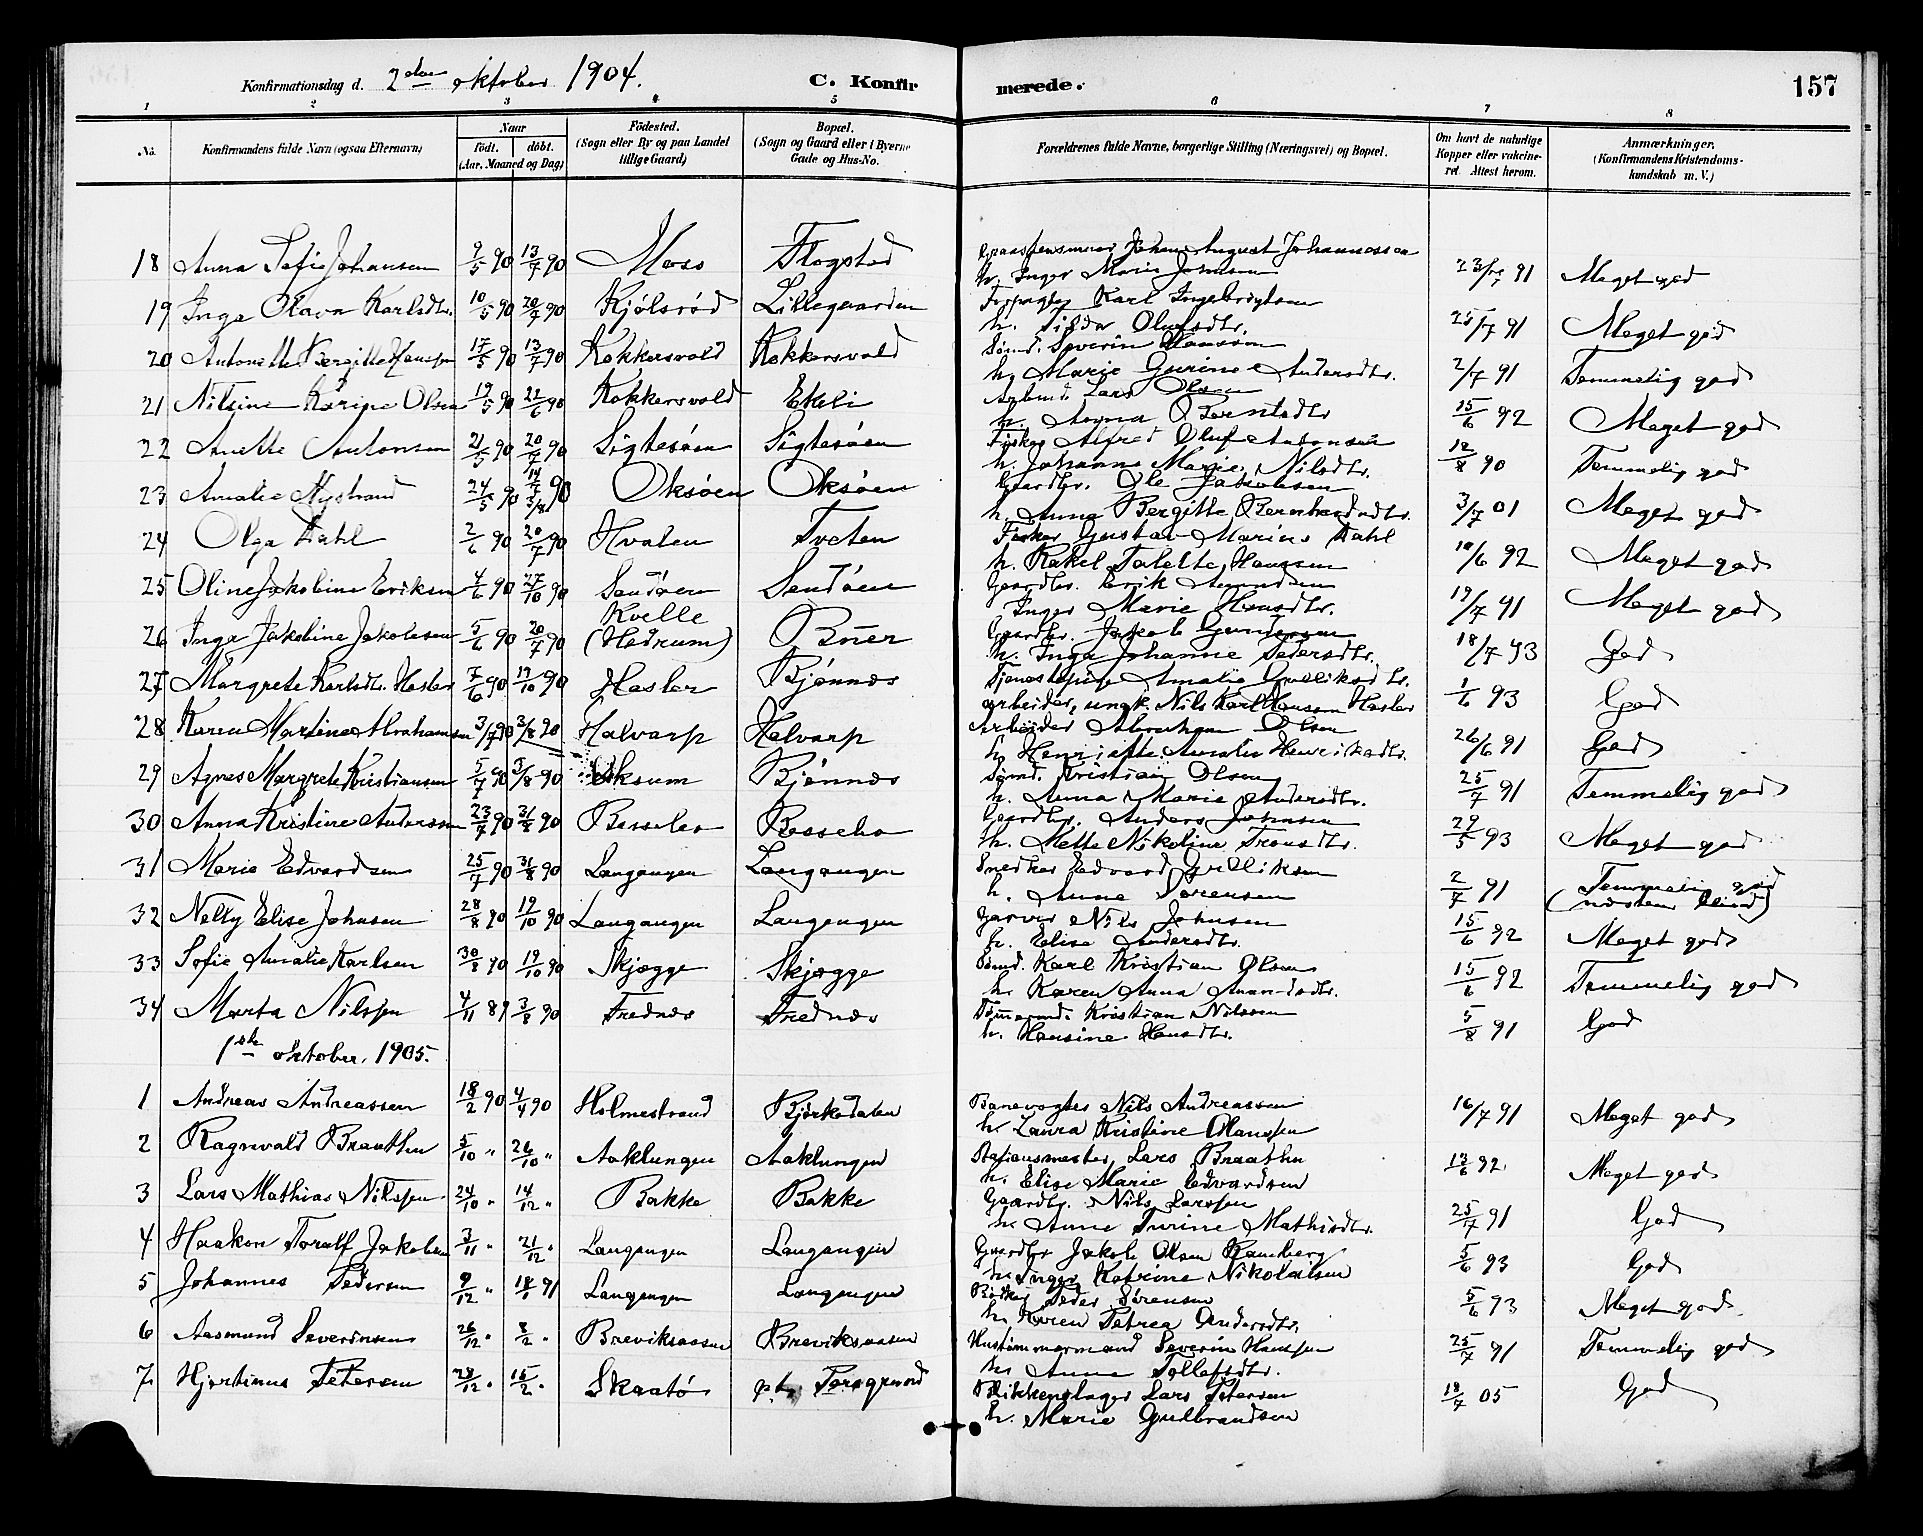 Konfirmationsdag d. 2den oktober 1904. C. Konfirmerede. 157
1 2 3 4 5 6 7 8
No. Konfirmandens fulde Navn (ogsaa Efternavn) Naar født. døbt. (Aar, Maaned og Dag) Fødested. (Sogn eller By og paa Landet tillige Gaard) Bopæl. (Sogn og Gaard eller i Byerne Gade og Hus-No. Forældrenes fulde Navne, borgerlige Stilling (Næringsvei) og Bopæl. Om havt de naturlige Kopper eller vakcineret. Attest herom. Anmærkninger. (Konfirmandens Kristendomskundskab m. V.)
18 Anna Sofie Johansen 9/5 90 13/7 90 Moss Flogstad Johan August Johannessen
h. Inger Marie Johnsen 91 Meget god
19 Inga Olava Karlsdtr. 10/5 90 20/7 90 Kjølsrød Lillegaarden Forpagter Karl Ingebrigtsen
h. Olufsdtr. 25/7 91 Meget god
20 Antonette Bergitte Hansen 17/5 90 13/7 90 Kokkersvold Kokkersvold Sømd. Severin Hanssen
h. Marie Gurine Andersdtr. 2/7 91 Temmelig god
21 Nilsine Karine Olsen 19/5 90 22/6 90 Kokkersvold Ekeli Arbmd. Lars Olsen
h. Anna Berntsdtr 15/6 92 Meget god
22 Anette Antonsen 21/5 90 20/7 90 Sigtesøen Sigtesøen Fisker Alfred Oluf Antonsen
h. Johanne Marie Nilsdtr. 12/8 90 Temmelig god
23 Amalie Nystrand 24/5 90 14/7 90 3/8 Oksøen Oksøen Gaardbr. Ole Jakobsen
h. Anna Bergitte Bernhardsdtr. 3/7 01 Meget god
24 Olga Dahl 2/6 90 20/7 90 Hvalen Tveten Fisker Gustav Marius Dahl
h. Rakel Talette Hanssen 10/6 92 Meget god
25 Oline Jakobine Eriksen 4/6 90 27/10 90 Sandøen Sandøen Gaardbr. Erik Amundsen
Inger Marie Hansdtr. 19/7 91 Meget god
26 Inga Jakobine Jakobsen 5/6 90 20/7 90 Kvelle (Hedrum) Bøer Gaardbr. Jakob Gundersen
h. Inga Johanne Pedersdtr. 18/7 93 God
27 Margrete Karlsdtr. Hasler 7/6 90 19/10 90 Hasler Bjønnes Tjenestepige Amalie Gulliksdtr.
arbeider, ungk. Nils Karl Hansen Hasler 1/6 93 God
28 Karen Martine Abrahamsen 3/7 90 3/8 90 Halvarp Halvarp Arbeider Abraham Olsen
h. Amalie Henriksdtr. 26/6 91 God
29 Agnes Margrete Kristiansen 5/7 90 3/8 90 Oksum Bjønnes Sømd. Kristian Olsen
h. Anna Marie Andersdtr. 25/7 91 Temmelig god
30 Anna Kristine Andersen 23/7 90 31/8 90 Bessebo Bessebo Gaardbr. Anders Johnsen
h. Mette Nikoline Tronsdtr. 29/5 93 Meget god
31 Marie Edvardsen 25/7 90 31/8 90 Langangen Langangen Snedker Edvard Gulliksen
h. Anne Sørensen 2/7 91 Temmelig god (næsten blind)
32 Nelly Elise Johnsen 28/8 90 19/10 90 Langangen Langangen Garver Nils Johnsen
h. Elise Andersdtr. 15/6 92 Meget god
33 Sofie Amalie Karlsen 30/8 90 19/10 90 Skjægge Skjægge Sømd. Karl Kristian Olsen
h. Karen Anna 15/6 92 Temmelig god
34 Marta Nilssen 4/11 89 3/8 90 Frednes Frednes Tømmermd. Kristian Nilssen
h. Hansine Hansdtr. 5/8 91 God
1ste oktober. 1905.
1 Andreas Andreassen 18/2 90 4/4 90 Holmestrand Bjørkedalen Banevogter Nils Andreassen
h. Laura Kristine Hanssen 16/7 91 Meget god
2 Ragnvald Braathen 5/10 " 26/10 " Aaklungen Aaklungen Stationsmester Lars Braathen
h. Elise Marie Edvardsen 13/6 92 Meget god
3 Lars Mathias Nilssen 24/10 " 14/12 " Bakke Bakke Gaardbr. Nils Larssen
h. Anne Turine Mathisdtr. 25/7 91 God
4 Haakon Toralf Jakobsen 3/11 " 21/12 " Langangen Langangen Gaardbr Jakob Olsen Ramberg
h. Inger Katrine Nikolaisen 5/6 93 God
5 Johannes Pedersen 9/12 " 18/1 91 Langangen Langangen Bødker Peder Sørensen
h. Karen Petrea Andersdtr. 5/6 93 Meget god
6 Aasmund Severinsen 26/12 " 8/2 " Breviksaasen Breviksaasen Hustømmermand Severin Hansen
h. Anne Tollefsdtr. 25/7 91 Temmelig god
7 Hjertinus Petersen 28/12 " 15/2 " Skaatø p.t. Porsgrund Blikkenslager Lars Petersen
h. Marie Gulbrandsen 18/7 05 God